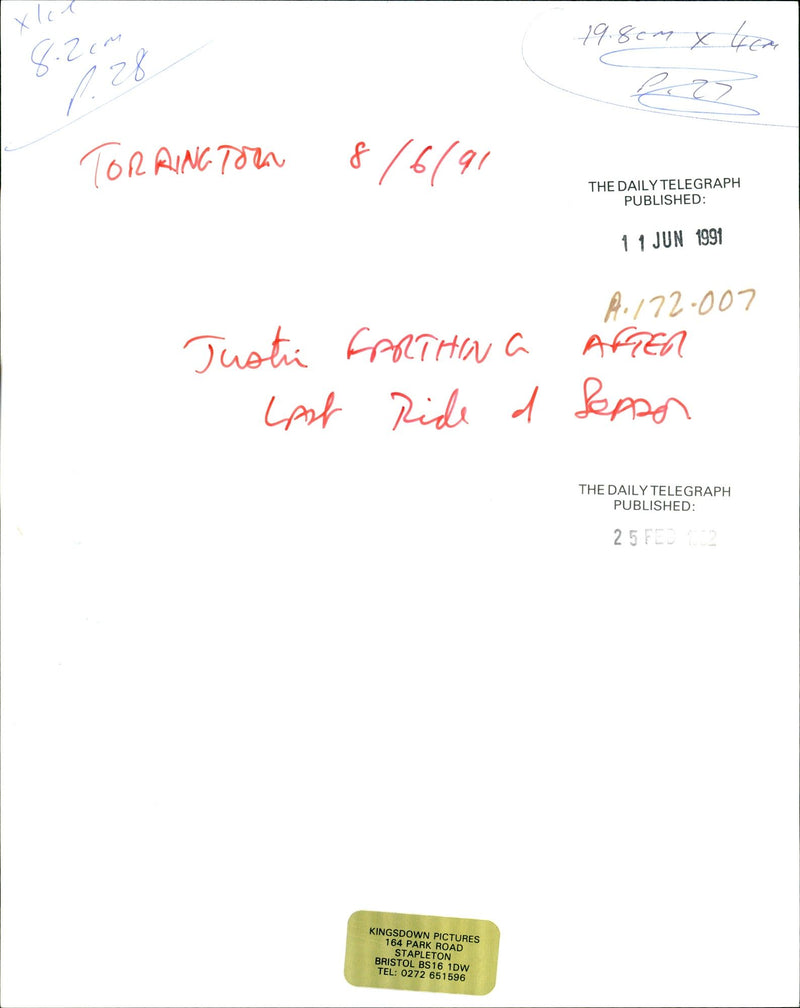 x 1cl
8.2cm
P.28
19.8cm x 4cm
P. 27
TORRINGTON 8/6/91
THE DAILY TELEGRAPH
PUBLISHED:
11 JUN 1991
A.172-007
Justin FARTHING AFTER
Last Ride of Season
THE DAILY TELEGRAPH
PUBLISHED:
25 FEB
KINGSDOWN PICTURES
164 PARK ROAD
STAPLETON
BRISTOL BS16 1DW
TEL: 0272 651596